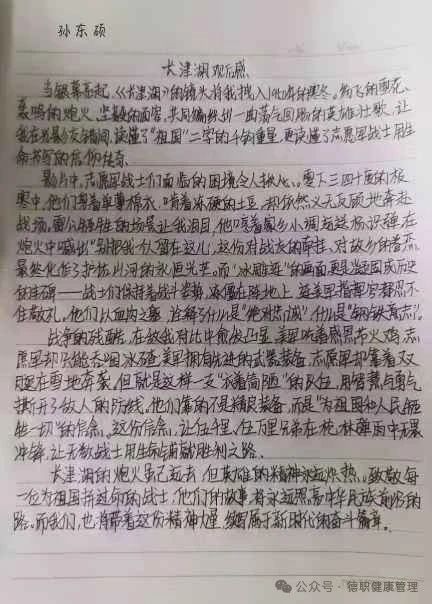 孙东硕
长津湖观后感
当银幕亮起,《长津湖》的镜头将我拽入1950年的寒冬,纷飞的雪花、
轰鸣的炮火、坚毅的面容,共同编织出一曲荡气回肠的英雄壮歌,让
我在光影交错间,读懂了"祖国"二字的千钧重量,更读懂了志愿军战士用生
命书写的信仰
影片中,志愿军战士们面临的困境令人揪心。零下三四十度的极
寒中,他们穿着单薄棉衣,啃着冰硬的土豆,却依然义无反顾地奔赴
战场。雷公牺牲的场景让我泪目,他哼着家乡小调运送标识弹,在
炮火中喊出"别把我一个人留在这儿",这份对战友的牵挂、对故乡的眷恋,
最终化作了护佑山河的永恒光芒。而"冰雕连"的画面更是凝固成历史
的丰碑——战士们保持着战斗姿势,冻僵在阵地上,连美军指挥官都忍不
住敬礼。他们以血肉之躯,诠释了什么是"绝对忠诚",什么是"钢铁意志"。
战争的残酷,在敌我对比中愈发凸显。美军吃着感恩节火鸡,志
愿军却只能吞咽冰碴;美军拥有先进的武器装备,志愿军却靠着双
腿在雪地奔袭。但就是这样一支的队伍,用智慧与勇气
撕开了敌人的防线。他们靠的不是精良装备,而是"为祖国和人民牺
牲一切"的信念。这份信念,让伍千里、伍万里兄弟在枪林弹雨中无畏
冲锋,让无数战士用生命铺就胜利之路。
长津湖的炮火虽已远去,但英雄的精神永远炽热。致敬每
一位为祖国拼过命的战士,他们的故事,将永远照亮中华民族前行的
路。而我们,也将带着这份精神力量,续写属于新时代的奋斗篇章。
公众号·德职健康管理